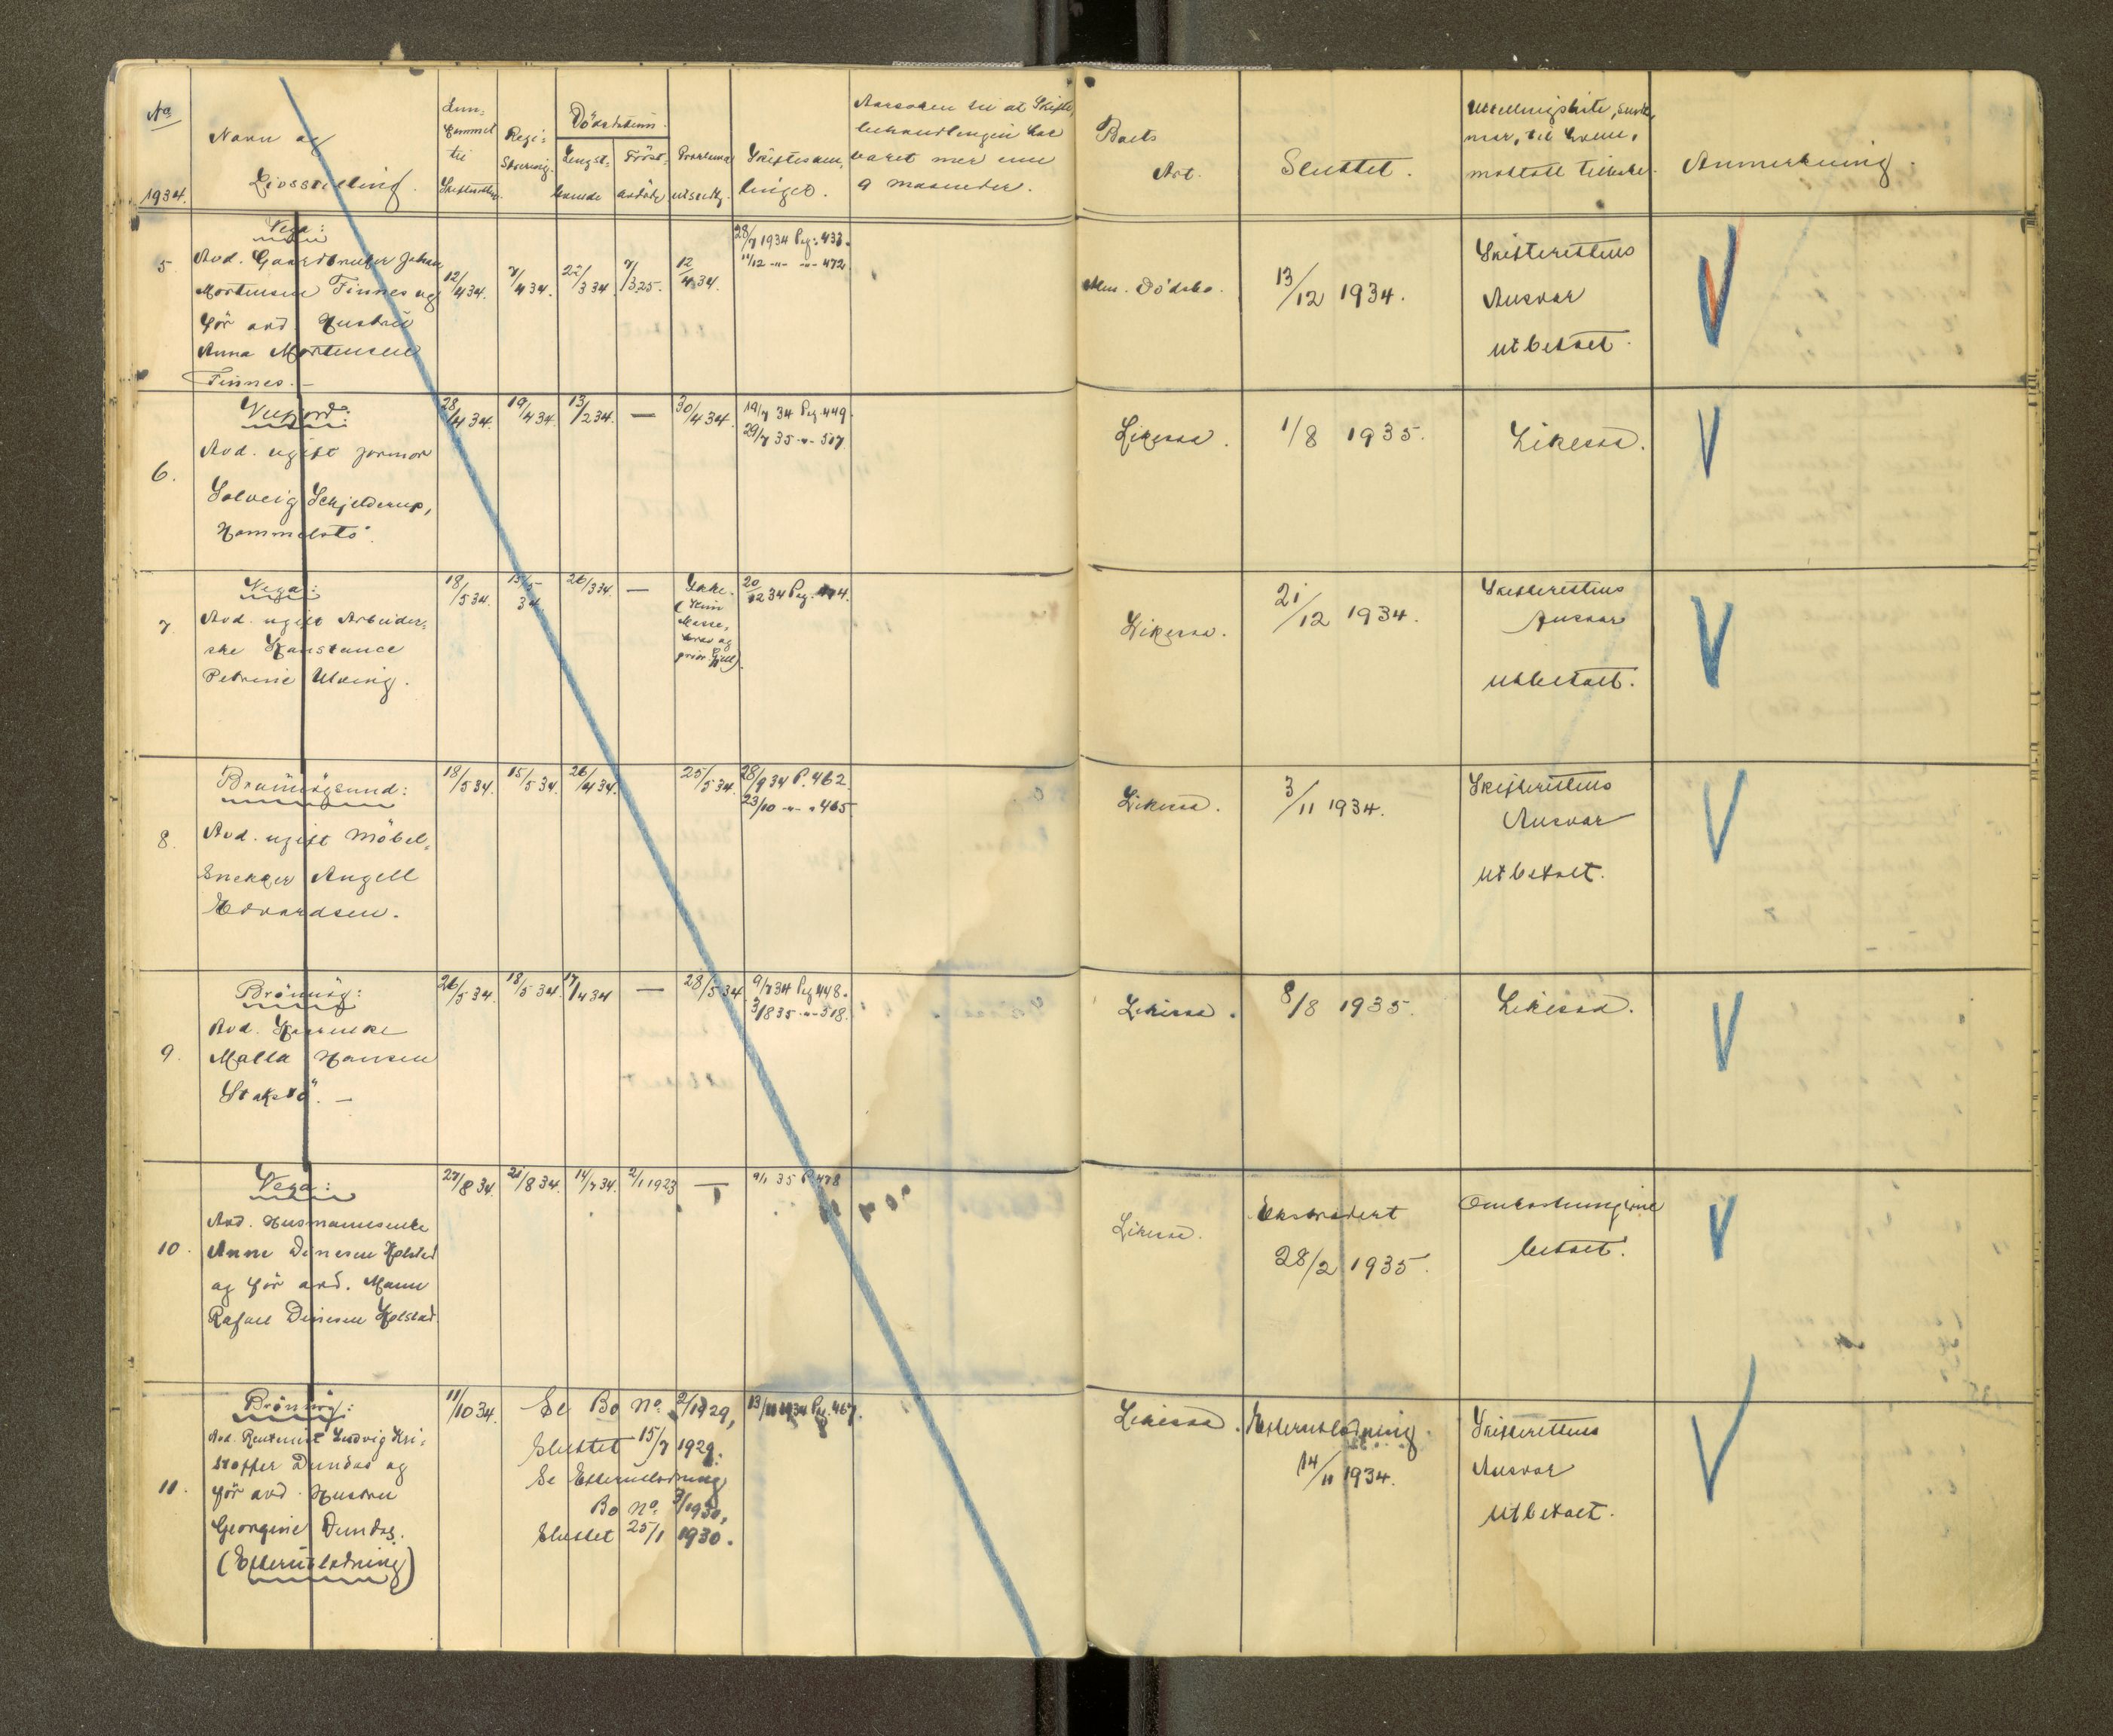 No
1934.
Navn og
Livsstilling.
Inn-
kommet
til
Skifteretten.
Regi-
strering.
Dödsdatum.
Lengst-
levende
Först-
avdöde
Proklama
utsendt.
Skiftesam-
linger.
Aarsaken til at Skifte-
behandlingen har
varet mer enn
9 maaneder.
Boets
Art.
Sluttet.
mottatt tilbake.
Anmerkning.
5.
Vega:
Avd. Gaardbruker Johan
Mortensen Finnes og
för avd. Hustru
Anna Mortensen
Finnes.-
12/4 34.
7/4 34.
22/3 34.
7/3 25.
12/4 34.
28/7 1934 Pg. 433.
11/12 -"- -"- 472.
Alm. Dödsbo.
13/12 1934.
Skifterettens
Ansvar
utbetalt.
6.
Velfjord:
Avd. ugift Jormor
Solveig Schjelderup,
Hommelstö.
28/4 34.
19/4 34.
13/2 34.
—
30/4 34.
19/7 34 Pg. 449.
29/7 35 -"- 517.
Likesaa.
1/8 1935.
Likesaa.
7.
Vega:
Avd. ugift Arbeider-
ske Konstance
Petrine Ulving.
18/5 34.
15/5 34.
26/3 34.
—
Ikke.
(Kun
Masse,
krav og
prior. Gjeld).
20/12 34 Pg. 474.
Likesaa.
21/12 1934.
Skifterettens
Ansvar
utbetalt.
8.
Brönnöysund:
Avd. ugift Möbel-
snekker Angell
Edvardsen.
18/5 34.
15/5 34.
26/4 34.
25/5 34.
28/9 34 P. 462.
23/10 -"- " 465.
Likesaa.
3/11 1934.
Skifterettens
Ansvar
utbetalt.
9.
Brönnöy:
Avd. Kaarenke
Malla Hansen
Stokstö. —
26/5 34.
18/5 34.
17/4 34
—
28/5 34.
9/7 34 Pg. 448.
3/8 35 -"- 518.
Likesaa.
8/8 1935.
Likesaa.
10.
Vega:
Avd. Husmannsenke
Anne Dinesen Holstad
og för avd. Mann
Rafael Dinesen Holstad.
27/8 34.
21/8 34.
14/7 34.
2/1 1923
—
9/1 35 P. 478
Likesaa.
Ekstradert
28/2 1935.
Omkostningene
betalt.
11.
Brönnöy:
Avd. Rentenist Ludvig Kri-
stoffer Dundas og
för avd. Hustru
Georgine Dundas.
(Efterutlodning)
11/10 34.
Se Bo no. 2/1929,
Sluttet 15/7 1929.
Se Efterutlodning
Bo no. 3/1930,
Sluttet 25/1 1930.
13/11 1934 Pg. 467.
Likesaa.
Efterutlodning.
14/11 1934.
Skifterettens
Ansvar
utbetalt.